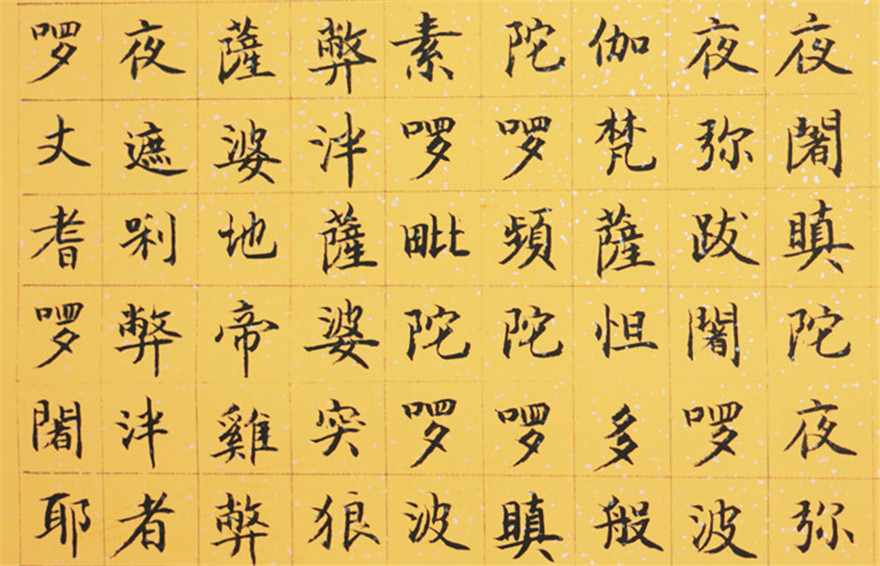 夜闍瞋陀夜弥
夜弥跋闍啰波
伽梵薩怛多般
陀啰頻陀啰瞋
素啰毗陀啰波
弊泮薩婆突狼
薩婆地帝雞弊
夜遮唎弊泮者
啰丈耆啰闍耶